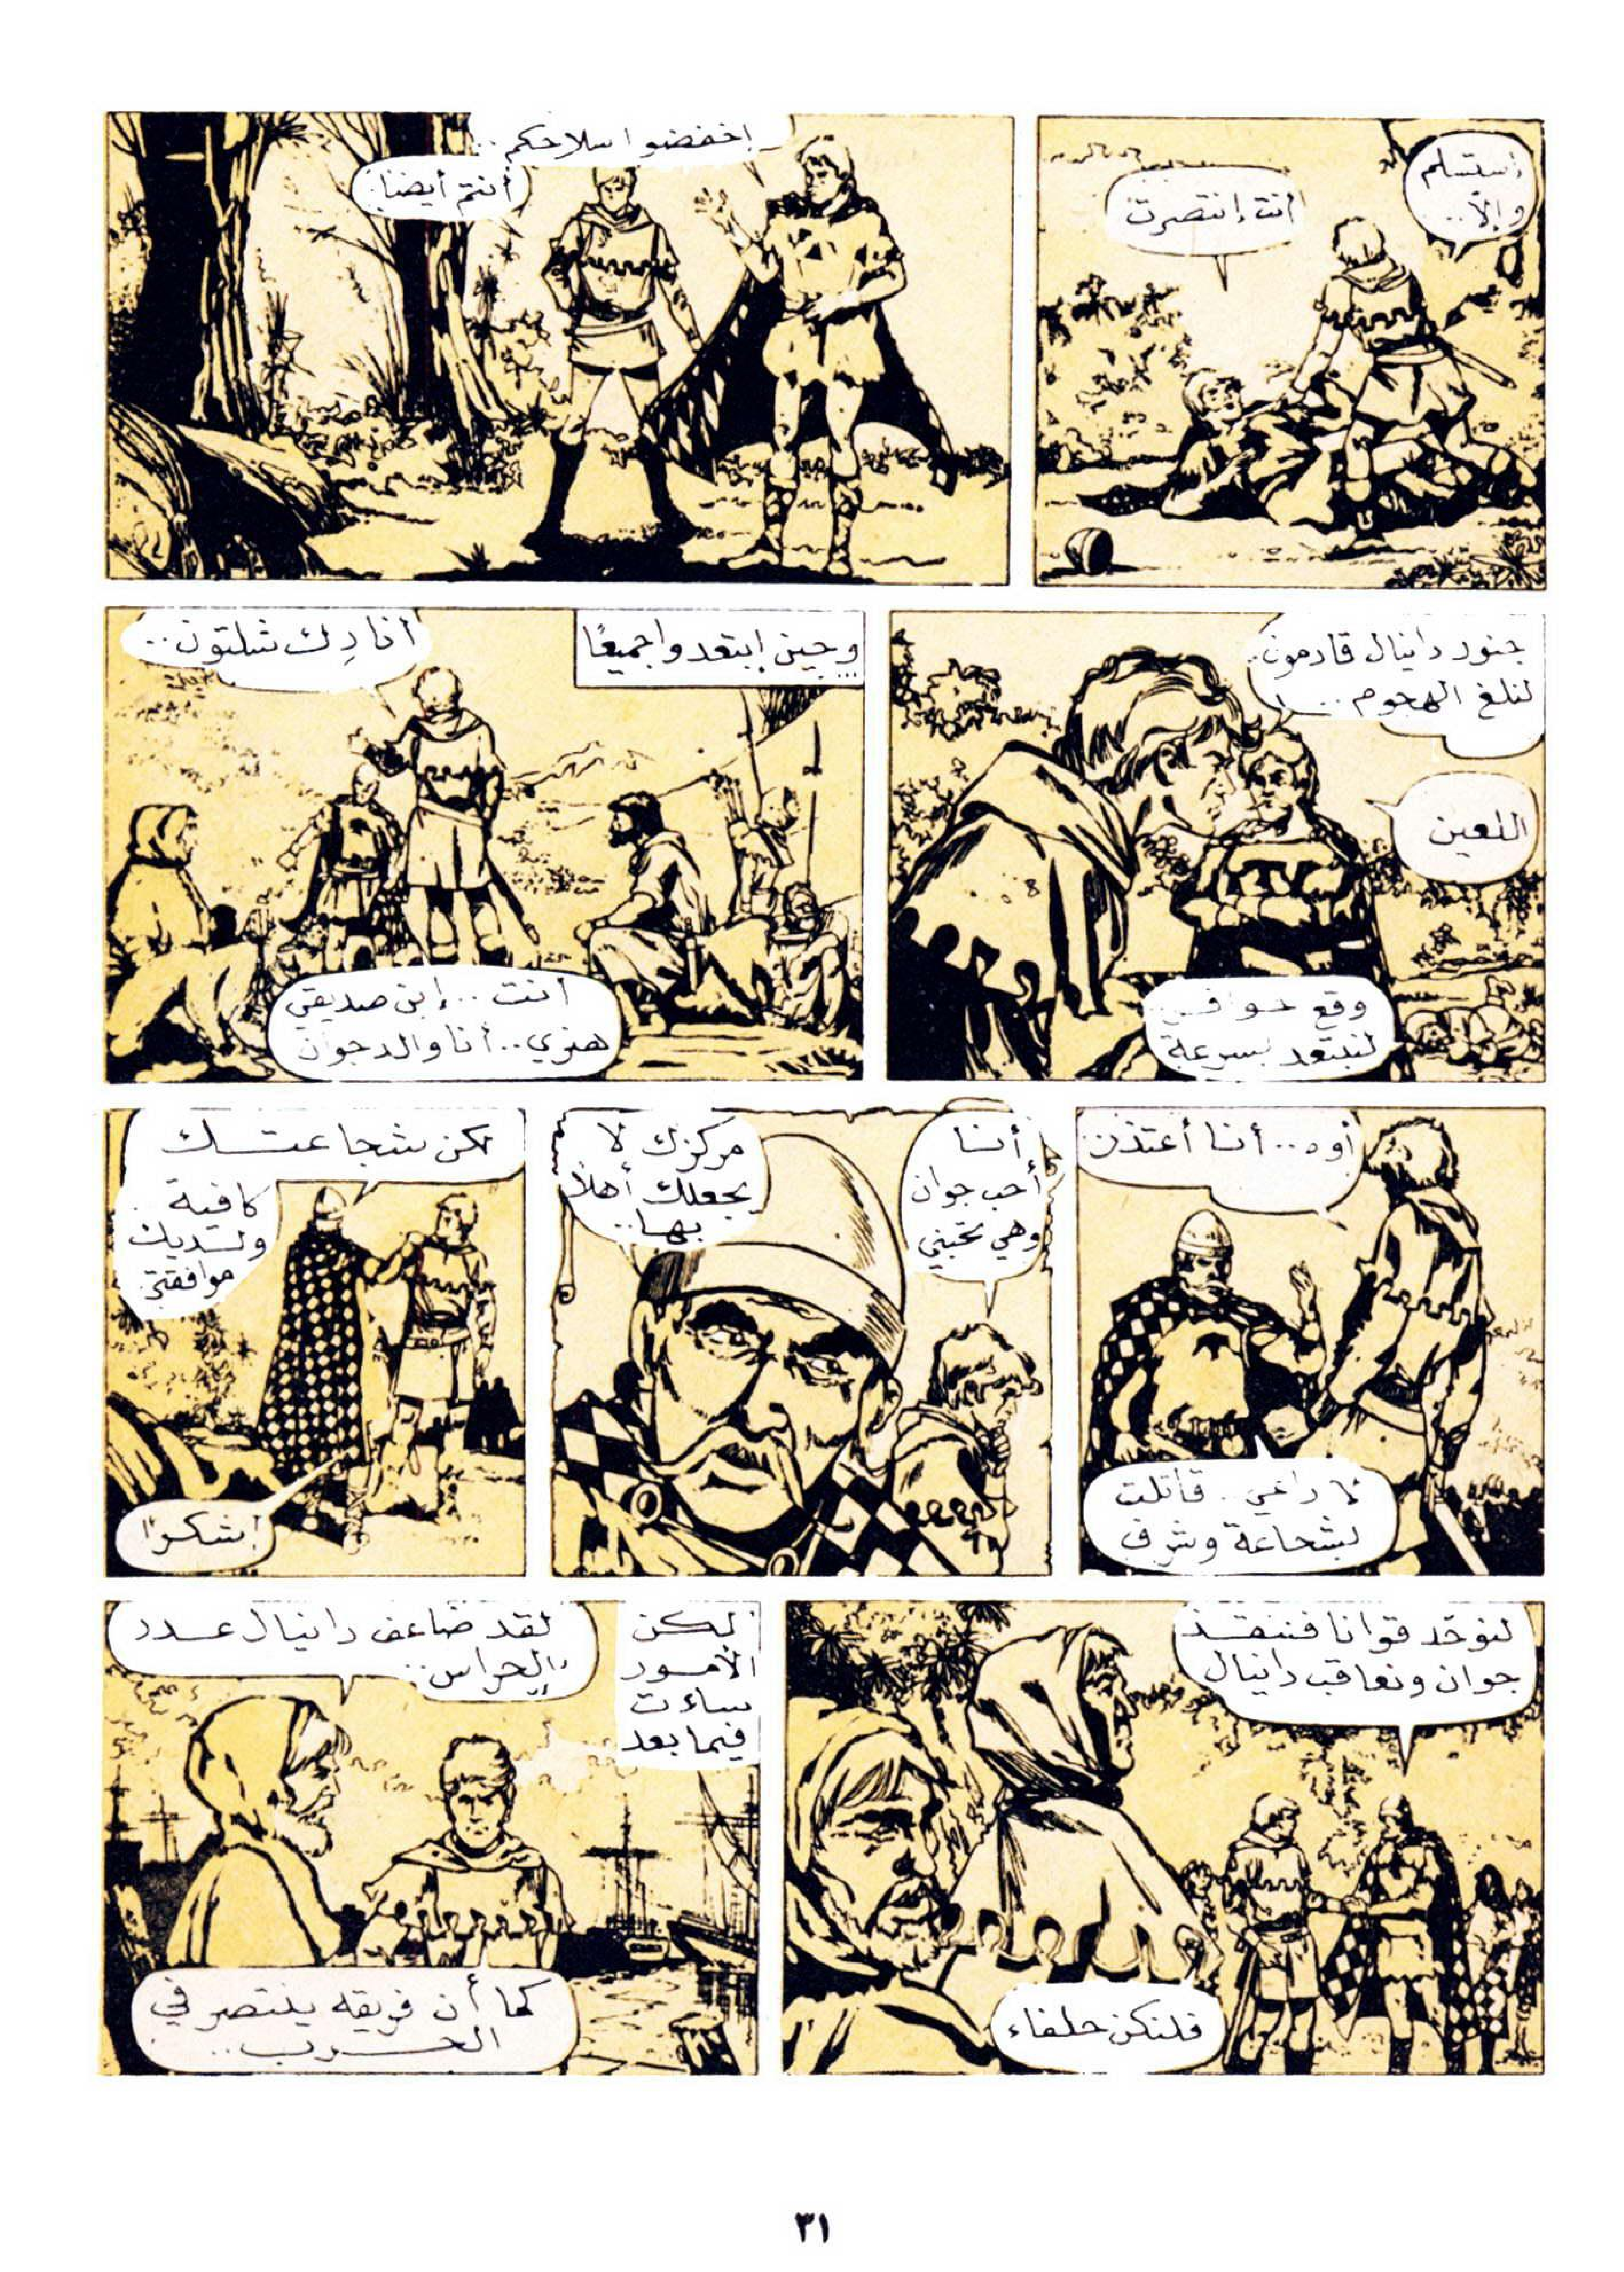 إستسلم
وإلّا..
أنت إنتصرت
إخفضوا سلاحكم..
أنتم أيضا.
جنود دانيال قادمون.
لنلغ الهجوم...
اللعين
وقع حوافر..
لنبتعد بسرعة
وحين إبتعدوا جميعًا
...
أنا دِك شلتون..
أنت.. إبن صديقي
هنري.. أنا والد جوان
أوه.. أنا أعتذر
لا داعي.. قاتلت
بشجاعة وشرف
أنا
أحب جوان
وهي تحبني
مركزك لا
يجعلك أهلاً
بها..
لكن شجاعتك
كافية
ولديك
موافقتي.
شكرًا
لنوحّد قوانا فننقذ
جوان ونعاقب دانيال
فلنكن حلفاء
لكن
الأمور
ساءت
فيما بعد
لقد ضاعف دانيال عدد
الحراس..
كما أن فريقه ينتصر في
الحرب..
٣١